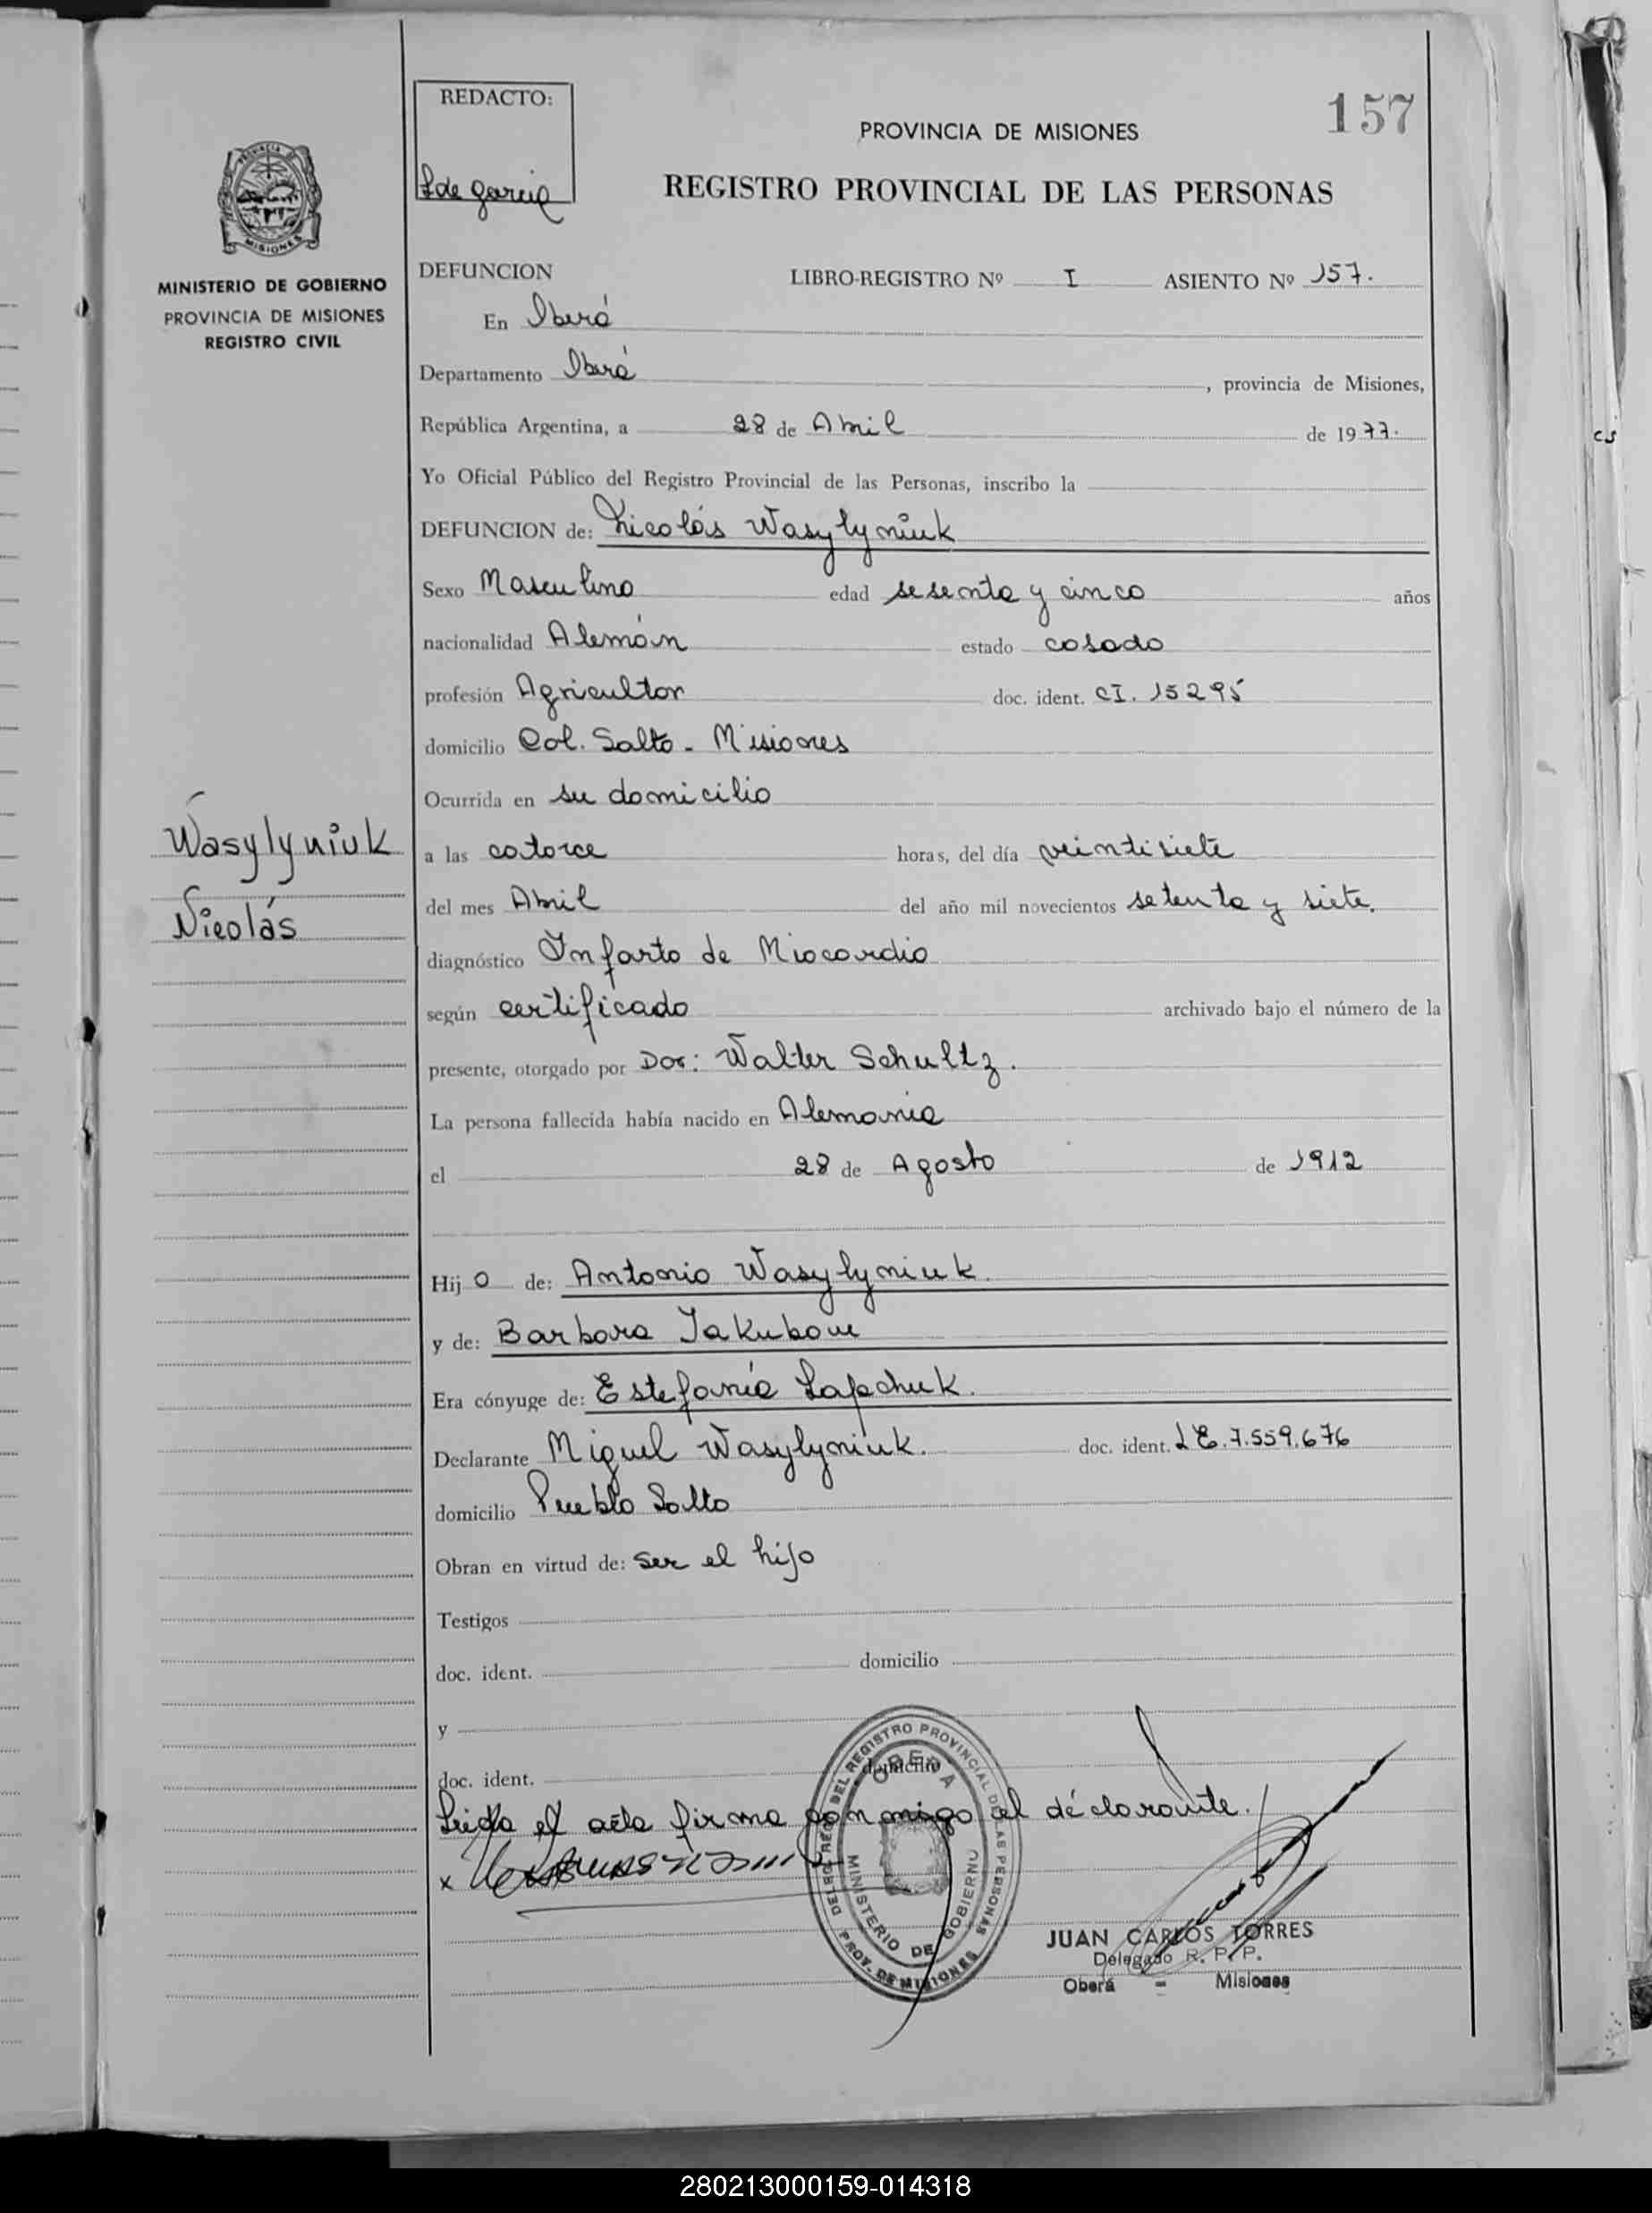 REDACTO:
L de Garcia
157
PROVINCIA DE MISIONES
REGISTRO PROVINCIAL DE LAS PERSONAS
PROVINCIA DE
MISIONES
MINISTERIO DE GOBIERNO
PROVINCIA DE MISIONES
REGISTRO CIVIL
DEFUNCION LIBRO-REGISTRO Nº I ASIENTO Nº 157.
En Oberá
Departamento Oberá, provincia de Misiones,
República Argentina, a 28 de Abril de 1977.
Yo Oficial Público del Registro Provincial de las Personas, inscribo la
DEFUNCION de: Nicolás Wasylyniuk
Sexo Masculino edad sesenta y cinco años
nacionalidad Alemán estado casado
profesión Agricultor doc. ident. CI. 15295
domicilio Col. Salto - Misiones
Ocurrida en su domicilio
Wasylyniuk
Nicolás
a las catorce horas, del día veintisiete
del mes Abril del año mil novecientos setenta y siete.
diagnóstico Infarto de Miocardio
según certificado archivado bajo el número de la
presente, otorgado por Dor: Walter Schultz.
La persona fallecida había nacido en Alemania
el 28 de Agosto de 1912
Hijo de: Antonio Wasylyniuk
y de: Barbara Jakubow
Era cónyuge de: Estefanía Lapchuk.
Declarante Miguel Wasylyniuk. doc. ident. LE. 7.559.676
domicilio Pueblo Salto
Obran en virtud de: ser el hijo
Testigos
doc. ident. domicilio
y
doc. ident. domicilio
Leída el acta firma conmigo el declarante.
x
DEL REGISTRO PROVINCIAL DE LAS PERSONAS
OBERA
MINISTERIO DE GOBIERNO
PROV. DE MISIONES
JUAN CARLOS TORRES
Delegado R. P. P.
Oberá - Misiones
280213000159-014318